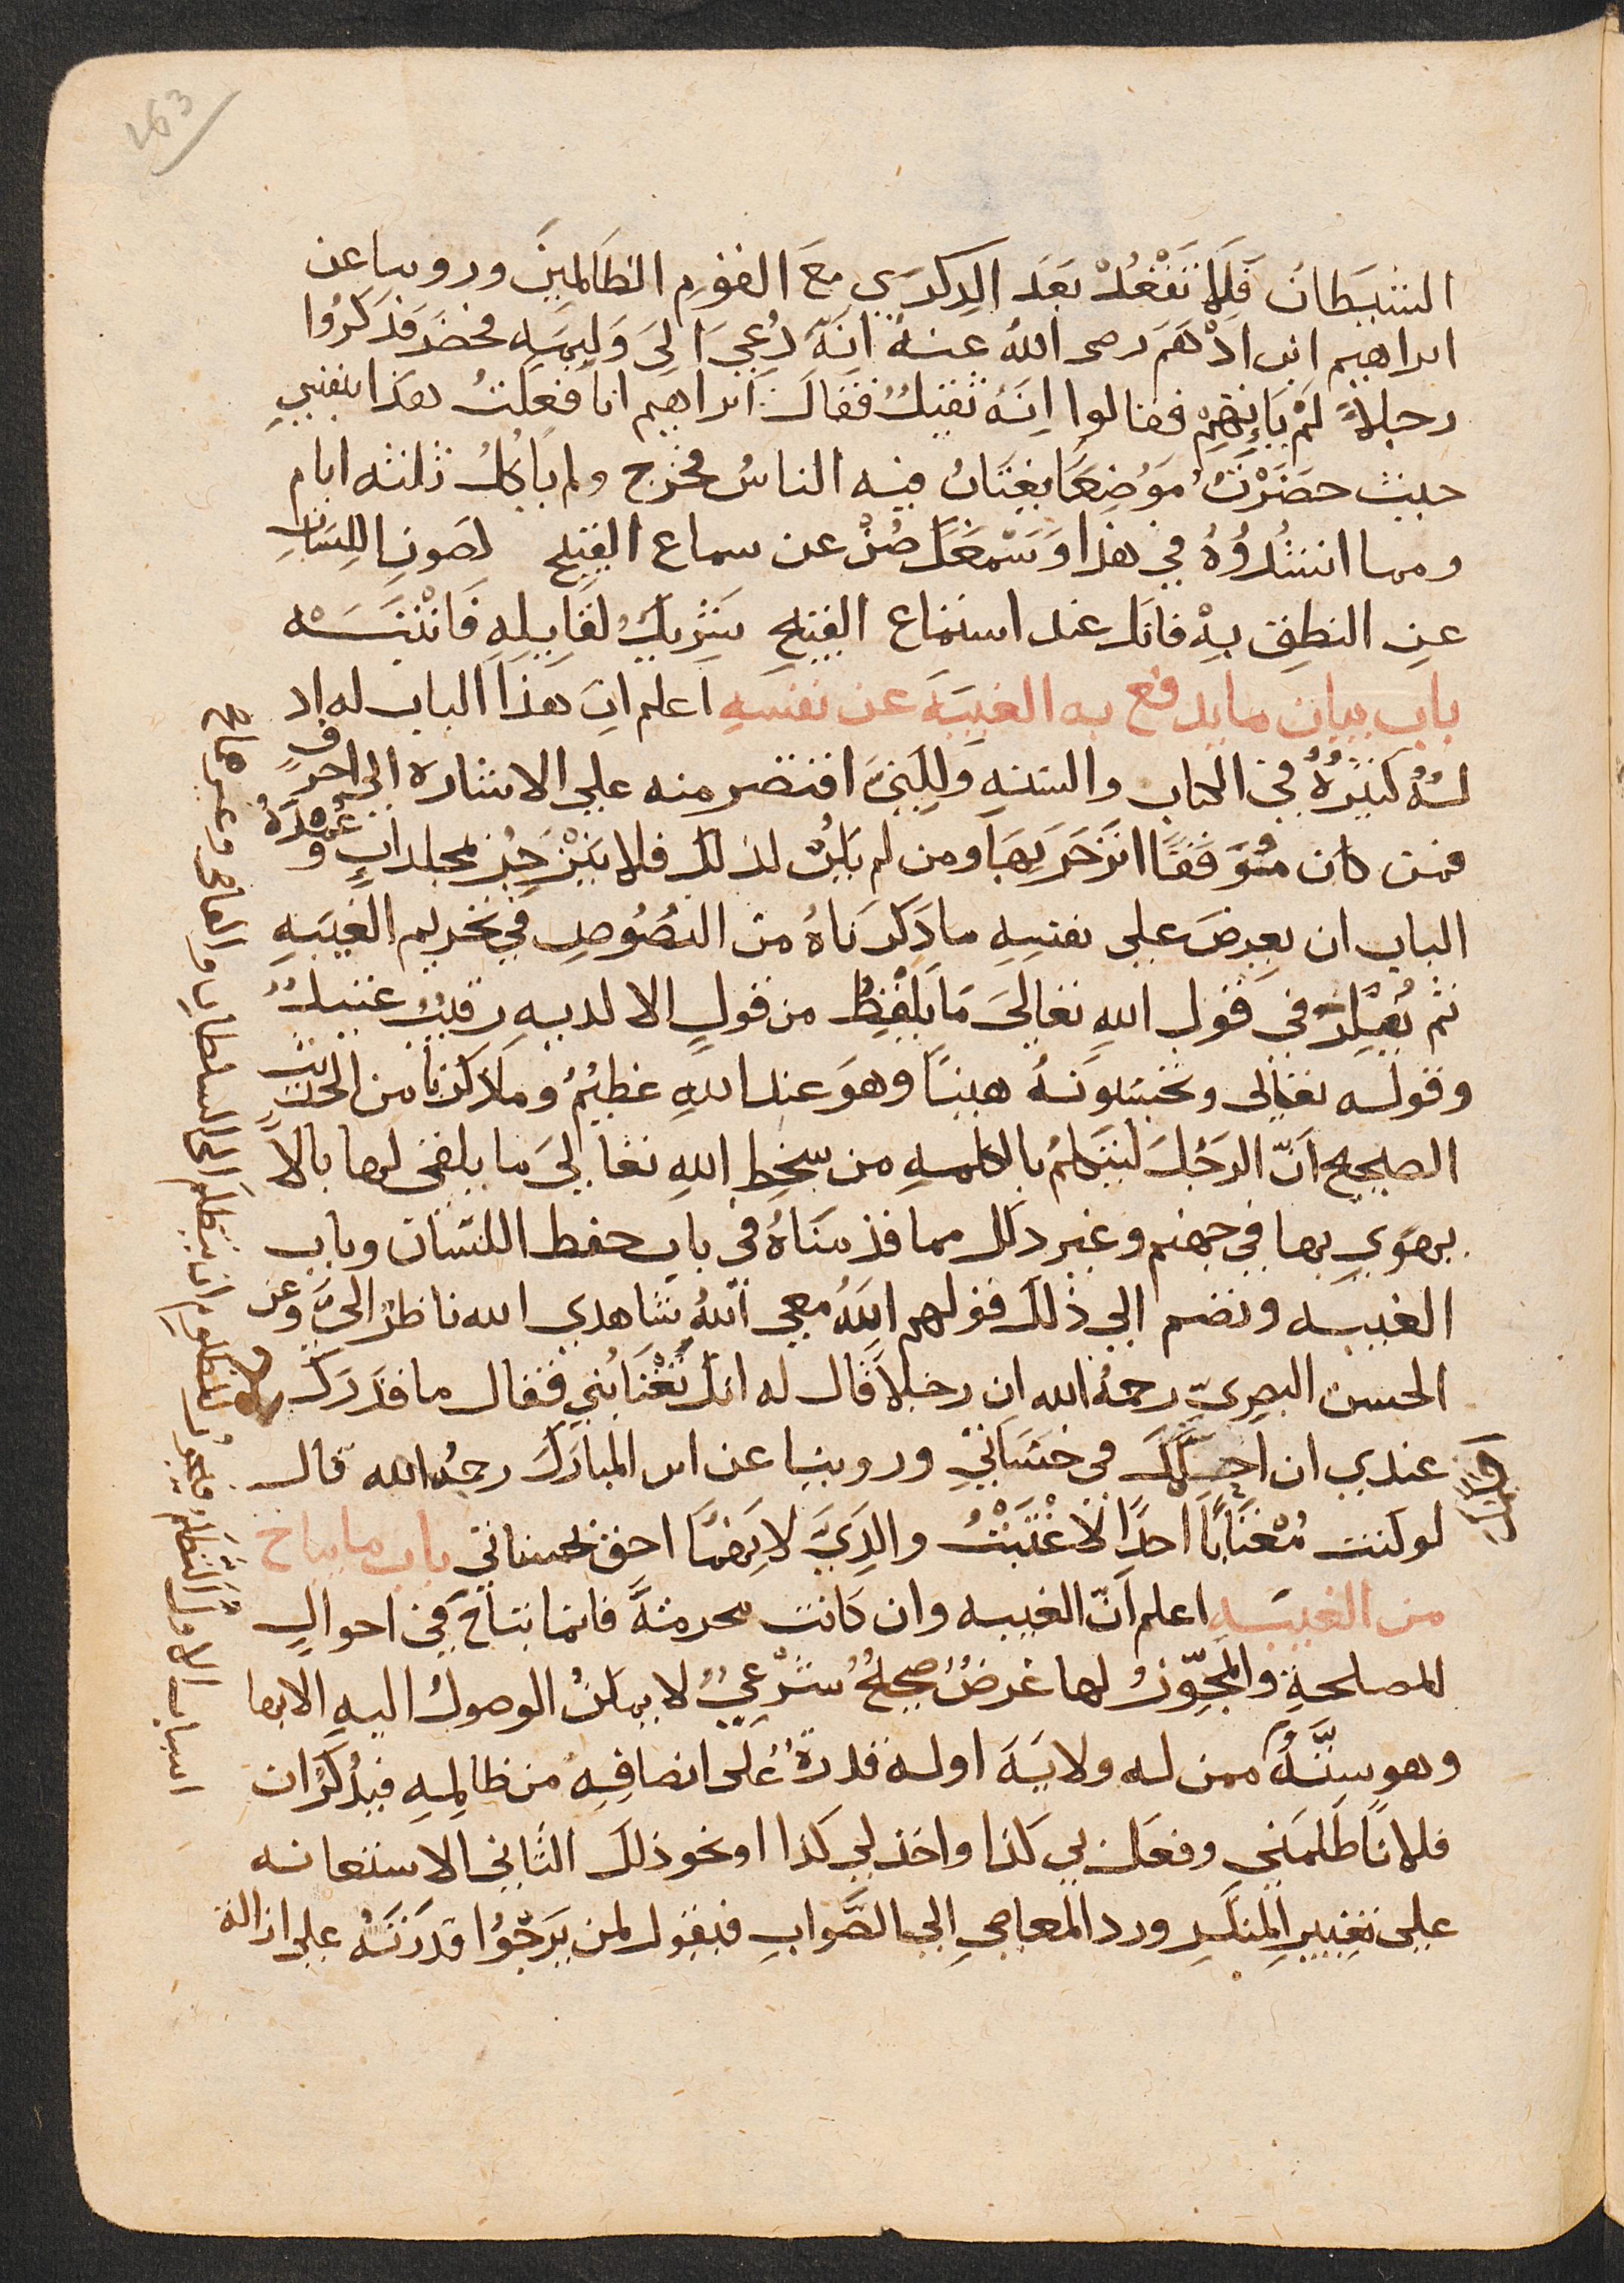 163
الشيطان فلا تقعد بعد الذكري مع القوم الظالمين وروينا عن
ابراهيم ابن ادهم رضى الله عنه انه دعي الى وليمه فحضر فذكروا
رجلا لم ياتهم فقالوا انه ثقيل فقال ابراهيم انا فعلت هذا بنفسي
حيث حضرت موضعا يغتاب فيه الناس فخرج ولم ياكل ثلثه ايام
ومما انشدوه في هذا وسمعك صن عن سماع القبيح كصون اللسان
عن النطق به فانك عند استماع القبيح شريك لقايله فانتبه
باب بيان ما يدفع به الغيبة عن نفسه اعلم ان هذا الباب له اد
لة كثيرة في الكتاب والسنه ولكنى اقتصر منه علي الاشارة الي احرف
فمن كان موفقا انزجر بها ومن لم يكن كذلك فلا ينزجر بمجلدات وعمدة
الباب ان يعرض علي نفسه ما ذكرناه من النصوص في تحريم الغيبه
ثم يفكر في قول الله تعالي ما يلفظ من قول الا لديه رقيب عتيد
وقوله تعالى وتحسبونه هينا وهو عند الله عظيم وما ذكرنا من الحديث
الصحيح ان الرجل ليتكلم بالكلمه من سخط الله تعالي ما يلقى لها بالا
يهوي بها في جهنم وغير ذلك مما قدمناه في باب حفظ اللسان وباب
الغيبه ونضم الي ذلك قولهم الله معي الله شاهدي الله ناظر الي وعن
الحسن البصري رحمه الله ان رجلا قال له انك تغتابني فقال ما قدرك
عندي ان احكمك في حسناتي وروينا عن ابن المبارك رحمه الله قال
لو كنت مغتابا احدا لاغتبت والدي لانهما احق بحسناتي باب ما يباح
من الغيبه اعلم ان الغيبه وان كانت محرمة فانما تباح في احوال
للمصلحة والمجوز لها غرض صحيح شرعي لا يمكن الوصول اليه الا بها
وهو ستة ممن له ولاية او له قدرة على انصافه من ظالمه فيذكر ان
فلانا ظلمني وفعل بي كذا واخذ لي كذا او نحو ذلك الثاني الاستعانه
علي تغيير المنكر ورد المعاصي الي الصواب فيقول لمن يرجوا قدرته علي ازالة
اسباب الاول التظلم فيجوز للمظلوم ان يتظلم الى السلطان والقاضي وغيرهما